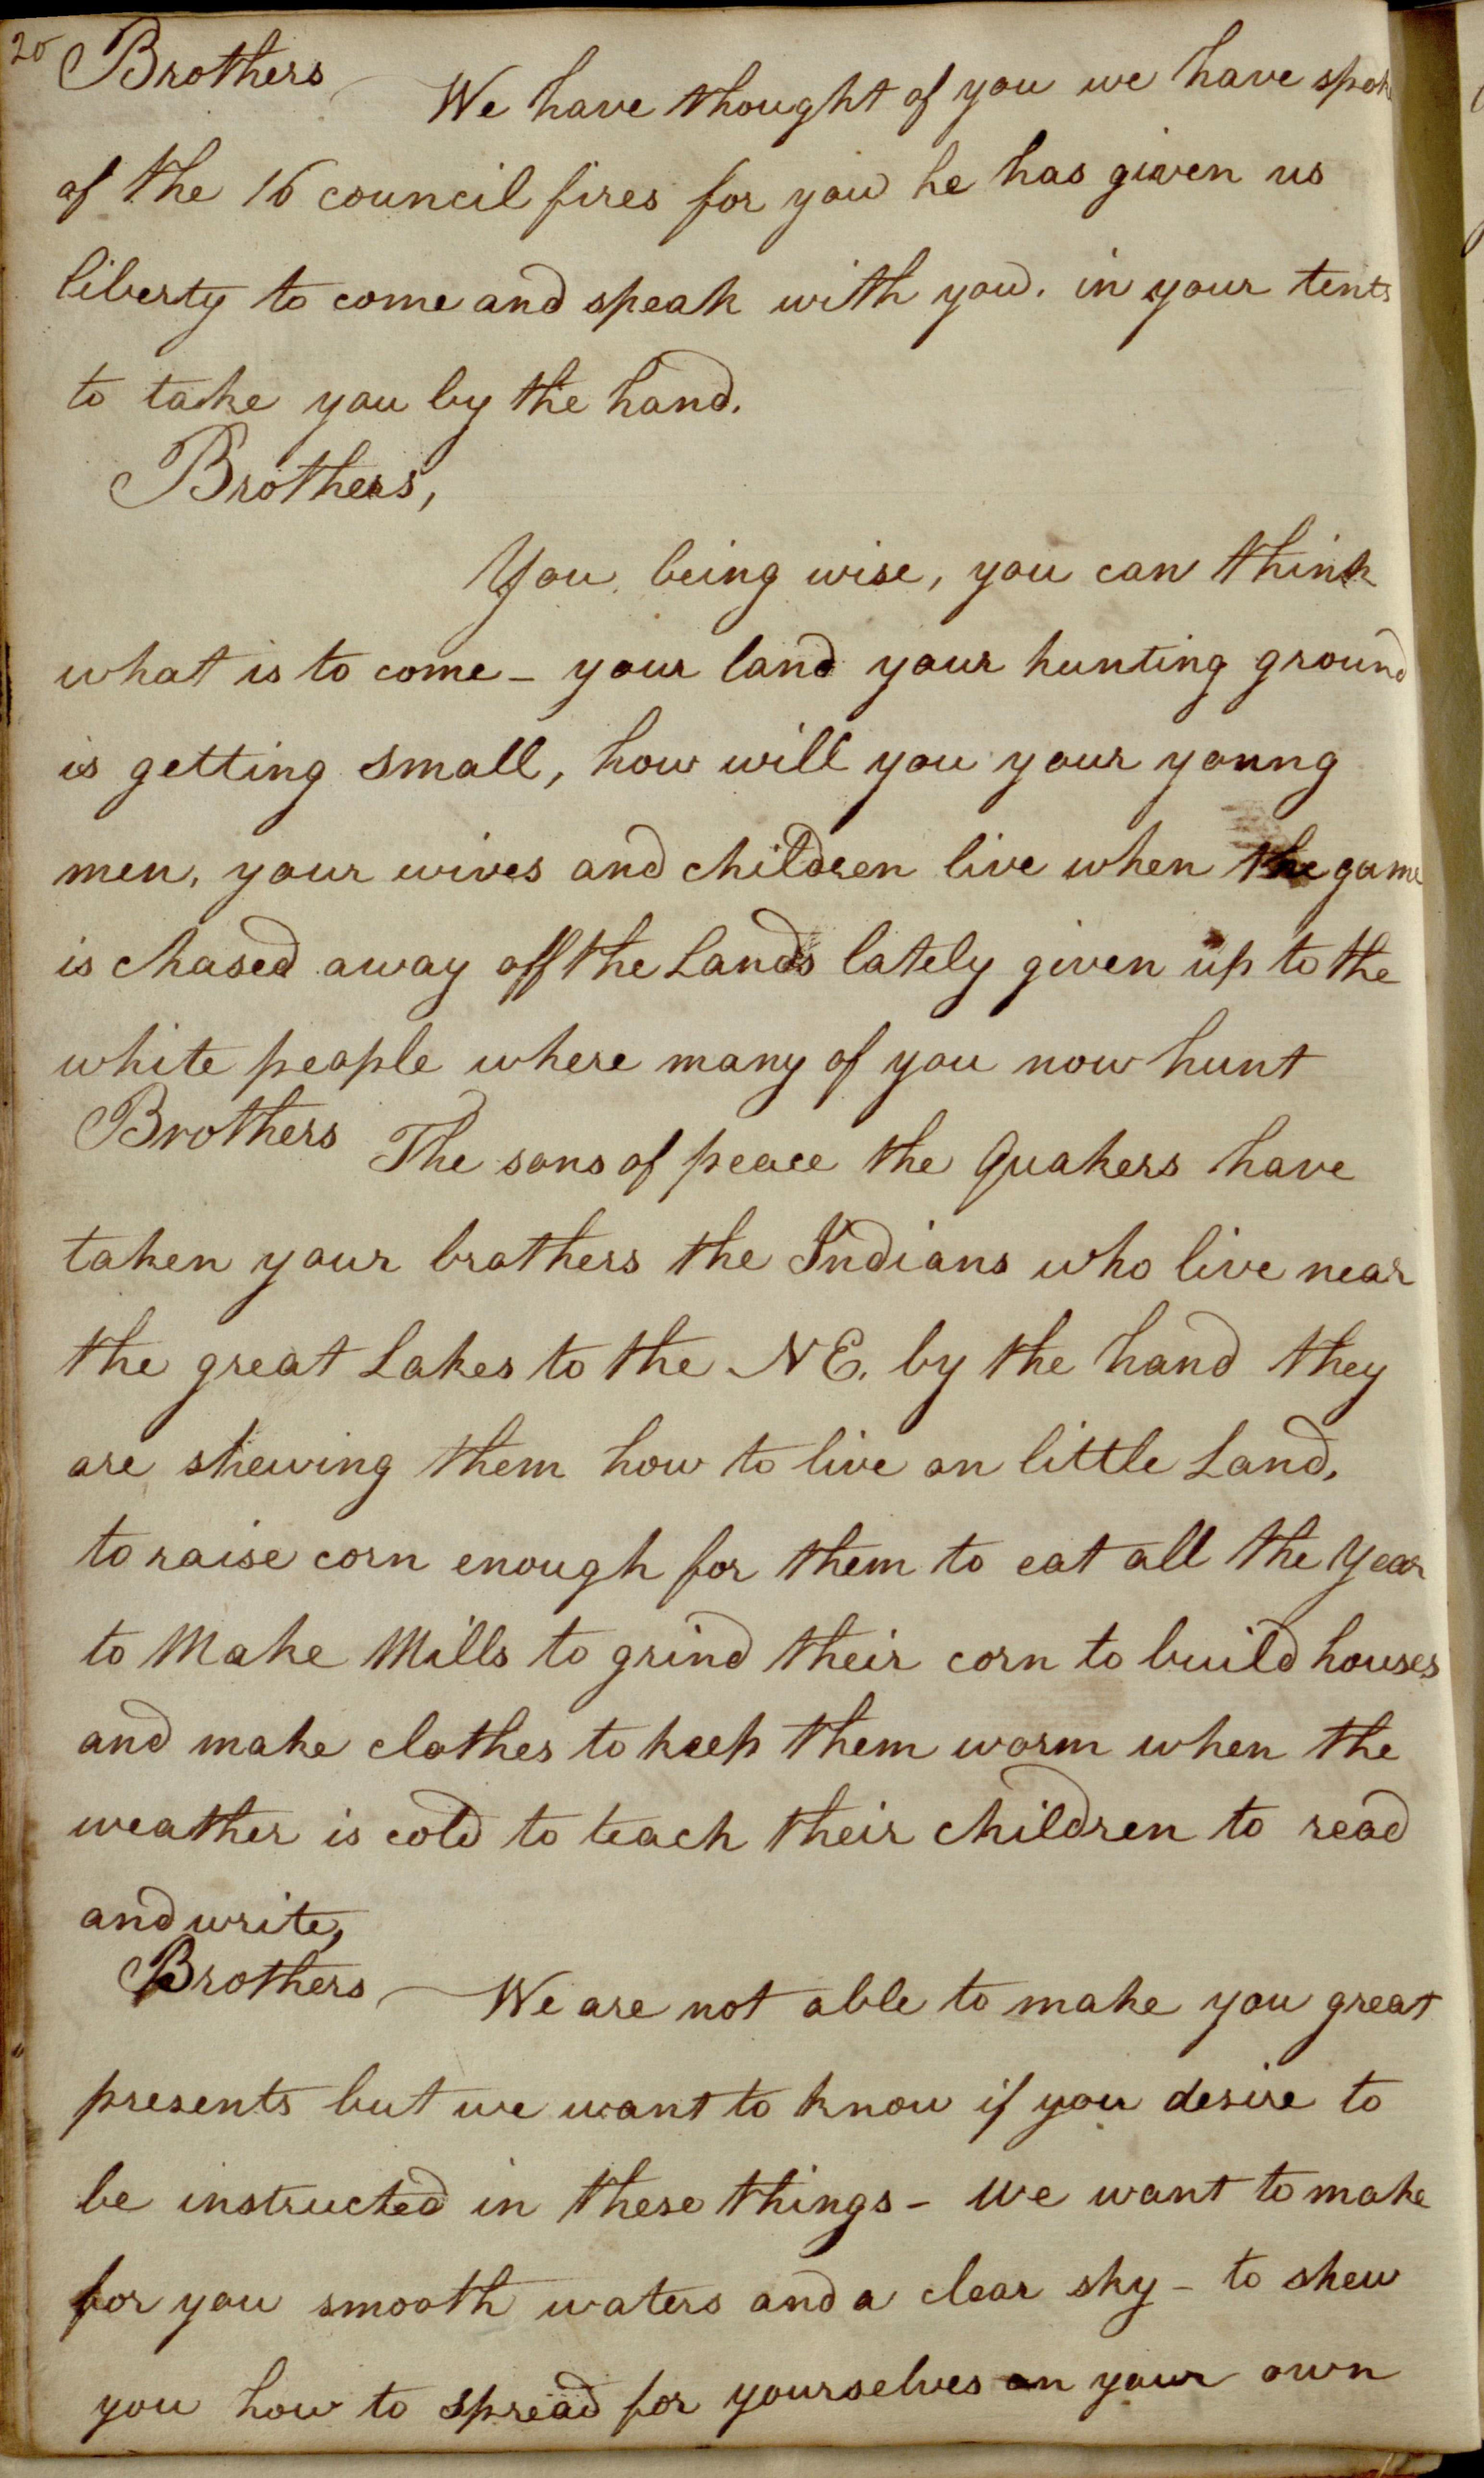 20 Brothers
We have thought of you we have spok
of the 16 council fires for you he has given us
liberty to come and speak with you. in your tents
to take you by the hand.
Brothers,
You being wise, you can think
what is to come - your land your hunting ground
is getting small, how will you your young
men, your wives and children live when the game
is chased away off the Lands lately given up to the
white people where many of you now hunt
Brothers The sons of peace the Quakers have
taken your brothers the Indians who live near
the great Lakes to the N E. by the hand they
are shewing them how to live on little Land,
to raise corn enough for them to eat all the Year
to Make Mills to grind their corn to build houses
and make clothes to keep them warm when the
weather is cold to teach their children to read
and write,
Brothers - We are not able to make you great
presents but we want to know if you desire to
be instructed in these things - We want to make
for you smooth waters and a clear sky - to shew
you how to spread for yourselves on your own